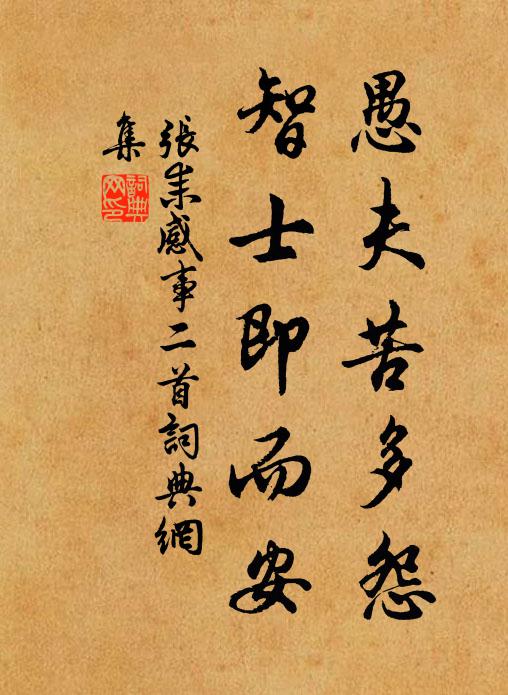 愚夫苦多怨
智士即而安
張耒感事二首詞典網
集
詞典
网印